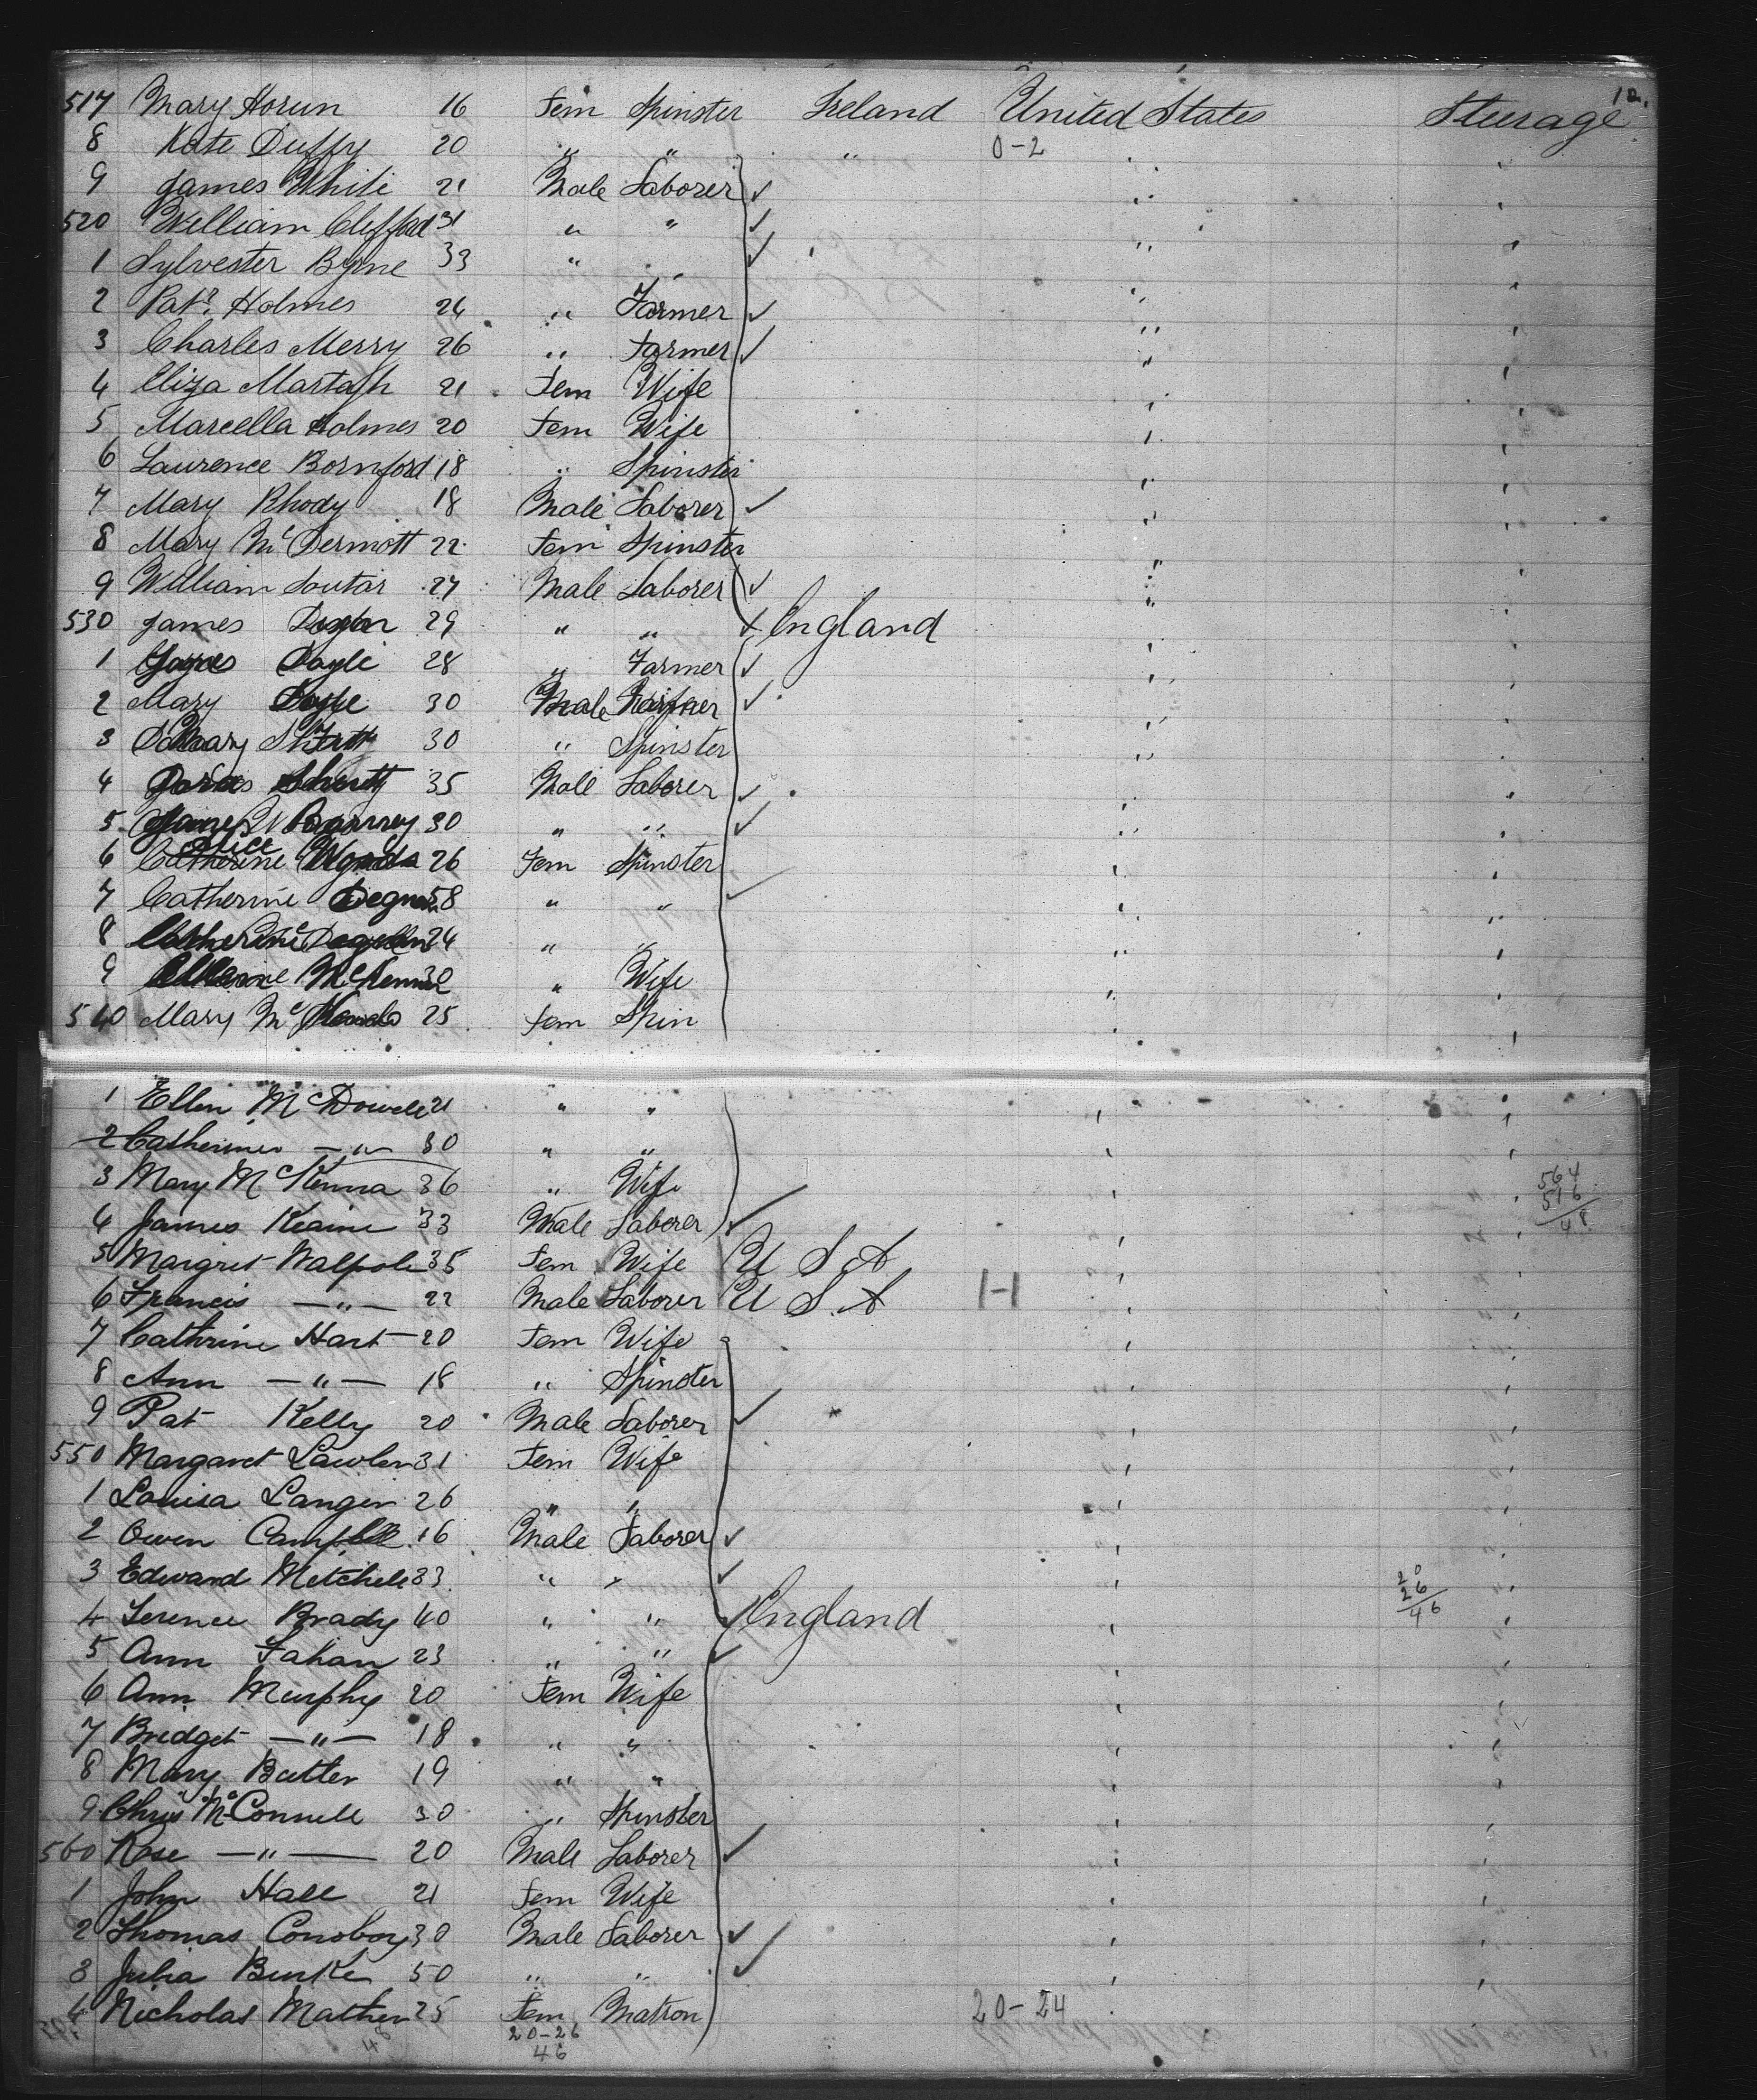 12.
517 Mary Horun 16 Fem Spinster Ireland United States Steerage
8 Kate Duffy 20 " " " 0-2 "
9 James White 21 Male Laborer " "
520 William Clifford 31 " " " "
1 Sylvester Byrne 33 " " " "
2 Patk. Holmes 24 " Farmer " "
3 Charles Merry 26 " Farmer " "
4 Eliza Martagh 21 Fem Wife " "
5 Marcella Holmes 20 Fem Wife " "
6 Laurence Bornford 18 " Spinster " "
7 Mary Rhody 18 Male Laborer " "
8 Mary McDermott 22 Fem Spinster " "
9 William Soutar 27 Male Laborer " "
530 James 29 " " England " "
1 Doyle 28 " Farmer " "
2 Mary Doyle 30 Male " "
3 Mary 30 " Spinster " "
4 35 Male Laborer " "
5 30 " " " "
6 Catherine Alice Woods 26 Fem Spinster " "
7 Catherine Degnan 58 " " " "
8 24 " " " "
9 McKenna 30 " Wife " "
540 Mary Mc 25 Fem Spin " "
1 Ellen McDowell 21 " " " "
2 Catherine —"— 30 " " " "
3 Mary McKenna 36 " Wife " " 564
516
48
4 James Keaine 33 Male Laborer " "
5 Margret Walpole 35 Fem Wife U S A " "
6 Francis —"— 22 Male Laborer U S. A 1-1 " "
7 Cathrine Hart 20 Fem Wife " "
8 Ann —"— 18 " Spinster " "
9 Pat Kelly 20 Male Laborer " "
550 Margaret Lawler 31 Fem Wife " "
1 Louisa Langin 26 " " " "
2 Owen Campbell 16 Male Laborer " "
3 Edward Mitchell 33 " " " 20
26
46
4 Terence Brady 40 " " England " "
5 Ann Fahan 23 " " " "
6 Ann Murphy 20 Fem Wife " "
7 Bridget —"— 18 " " " "
8 Mary Butler 19 " " " "
9 Chris McConnell 30 " Spinster " "
560 Rose —"— 20 Male Laborer " "
1 John Hall 21 Fem Wife " "
2 Thomas Conoboy 30 Male Laborer " "
3 Julia Burke 50 " " " "
4 Nicholas Mather 25 Fem Matron 20-24
48 20-26
46